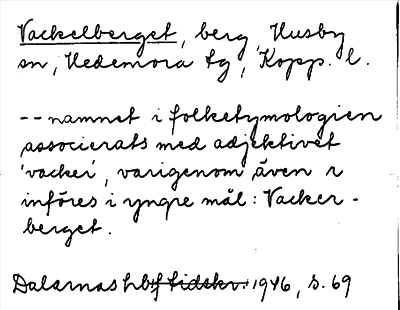 Vackelberget, berg, Husby
sn, Hedemora tg, Kopp. l.
-- namnet i folketymologien
associerats med adjektivet
'vacker', varigenom även r
införes i yngre mål: Vacker-
berget.
Dalarnas hbf tidskr. 1946, s. 69